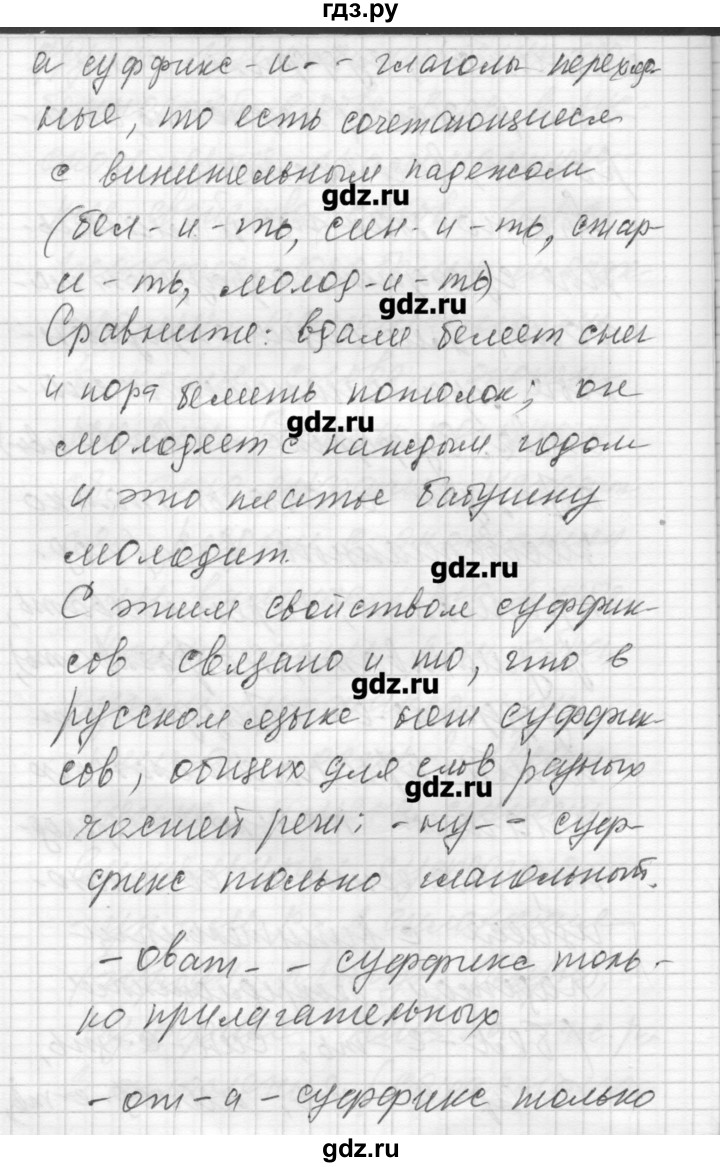 гдз.ру
а суффикс -и- - глаголы переход-
ные, то есть сочетающиеся
с винительным падежом
gdz.ru
(бел-и-ть, син-и-ть, стар-
и-ть, молод-и-ть)
gdz.ru
Сравните: вдали белеет снег
и пора белить потолок; он
gdz.ru
молодеет с каждым годом
и это платье бабушку
молодит.
gdz.ru
С этим свойством суффик-
сов связано и то, что в
gdz.ru
русском языке нет суффик-
сов, общих для слов разных
gdz.ru
частей речи: -ну- - суф-
фикс только глагольный.
-оват- - суффикс толь-
ко прилагательных
-от-а - суффикс только
gdz.ru